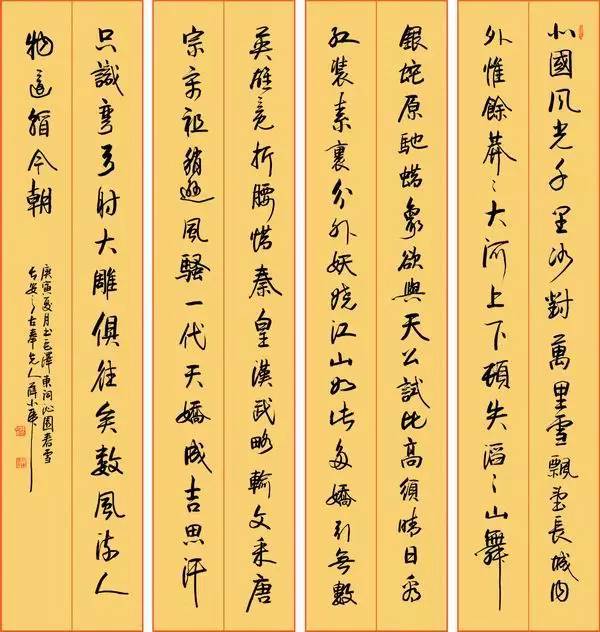 北國风光千里冰對萬里雪飄望長城内
外惟餘莽〻大河上下頓失滔〻山舞
銀蛇原馳蜡象欲與天公試比高須晴日看
红装素裹分外妖娆江山如此多嬌引無數
英雄竞折腰惜秦皇漢武略輸文采唐
宗宋祖稍遜風騷一代天嬌成吉思汗
只識彎弓射大雕俱往矣数風流人
物還看今朝
庚寅夏月书毛澤東词沁園春雪
古奉先人薛小